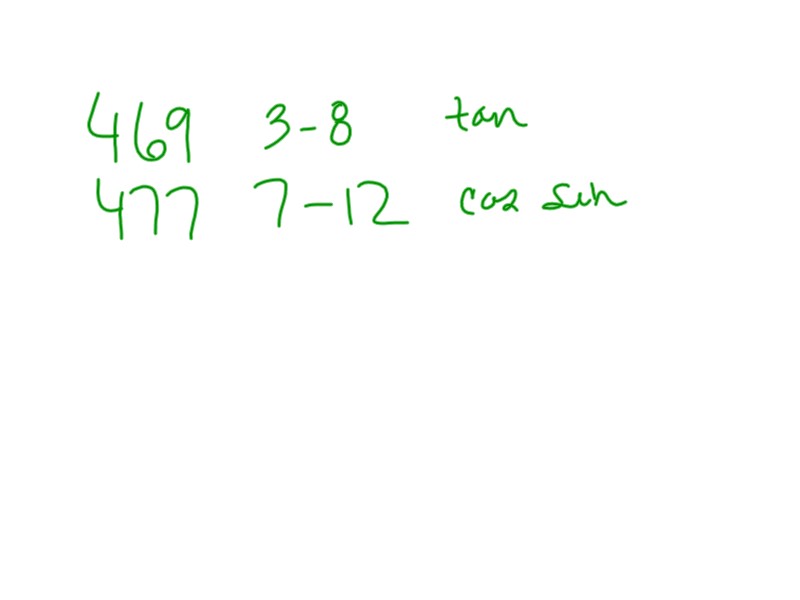 469 3-8 tan
477 7-12 cos sin